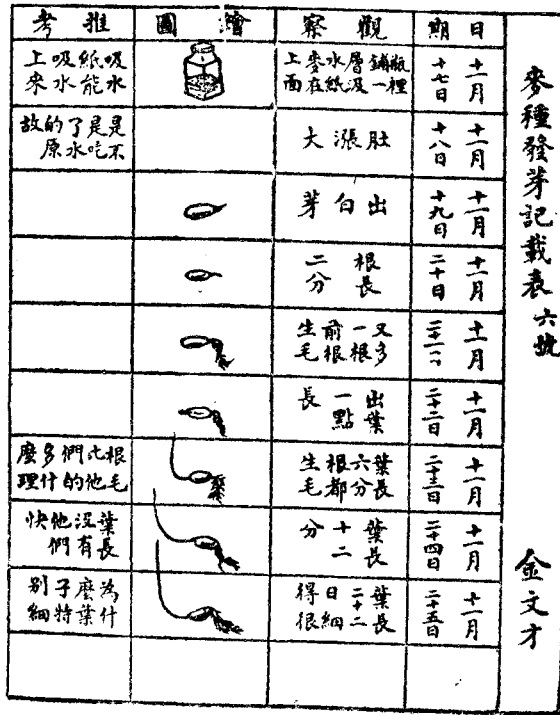 麥種發芽記載表 六號 金文才
日期
觀察
繪圖
推考
十一月十七日
瓶裡鋪一層汲水紙麥在上面
吸水紙能吸水上來
十一月十八日
肚漲大
是不是吃了水的原故
十一月十九日
出白芽
十一月二十日
根長二分
十一月二十一
又多一根前根生毛
十一月二十二日
出葉一點長
十一月二十三日
葉長六分根都生毛
根毛比他們的多什麼理
十一月二十四日
葉長十二分
葉長沒有他們快
十一月二十五日
葉長二十二日細得很
為什麼葉子特別細